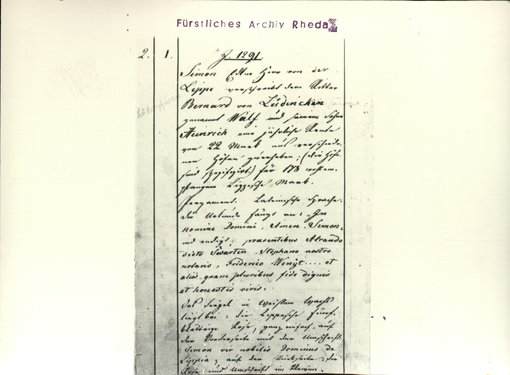 Fürstliches Archiv Rheda
2. 1. J. 1291.
Simon Edler Herr von der
Lippe verschreibt dem Ritter
Bernard von Lüdincken
genannt Wulf und seinem Sohne
Heinrich eine jährliche Rente
von 22 Mark aus verschiede-
nen Höfen (die Höfe
sind specificirt) für 173
Lippesche Mark.
Pergament. Lateinische Sprache.
Die Urkunde fängt an: In
nomine Domini. Amen. Simon.
und endigt: praesentibus Alrando
dicto Swarten, Stephano nostro
notario, Friderico et
aliis quam pluribus fide dignis
et honestis viris.
Das Siegel in weißem Wachs
liegt bei: die Lippesche fünf-
blättrige Rose, ganz auf
der Vorderseite mit der Umschrift:
Simon nobilis Dominus de
Lippia, auf der Rückseite die
Rose und Umschrift im Kleinen.